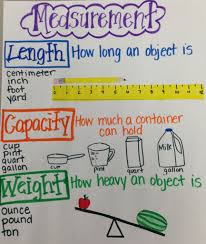 Measurement
Length How long an object is
centimeter
inch
foot
yard
Capacity How much a container can hold
cup
pint
quart
gallon
cup
pint
quart
Milk
gallon
Weight How heavy an object is
ounce
pound
ton